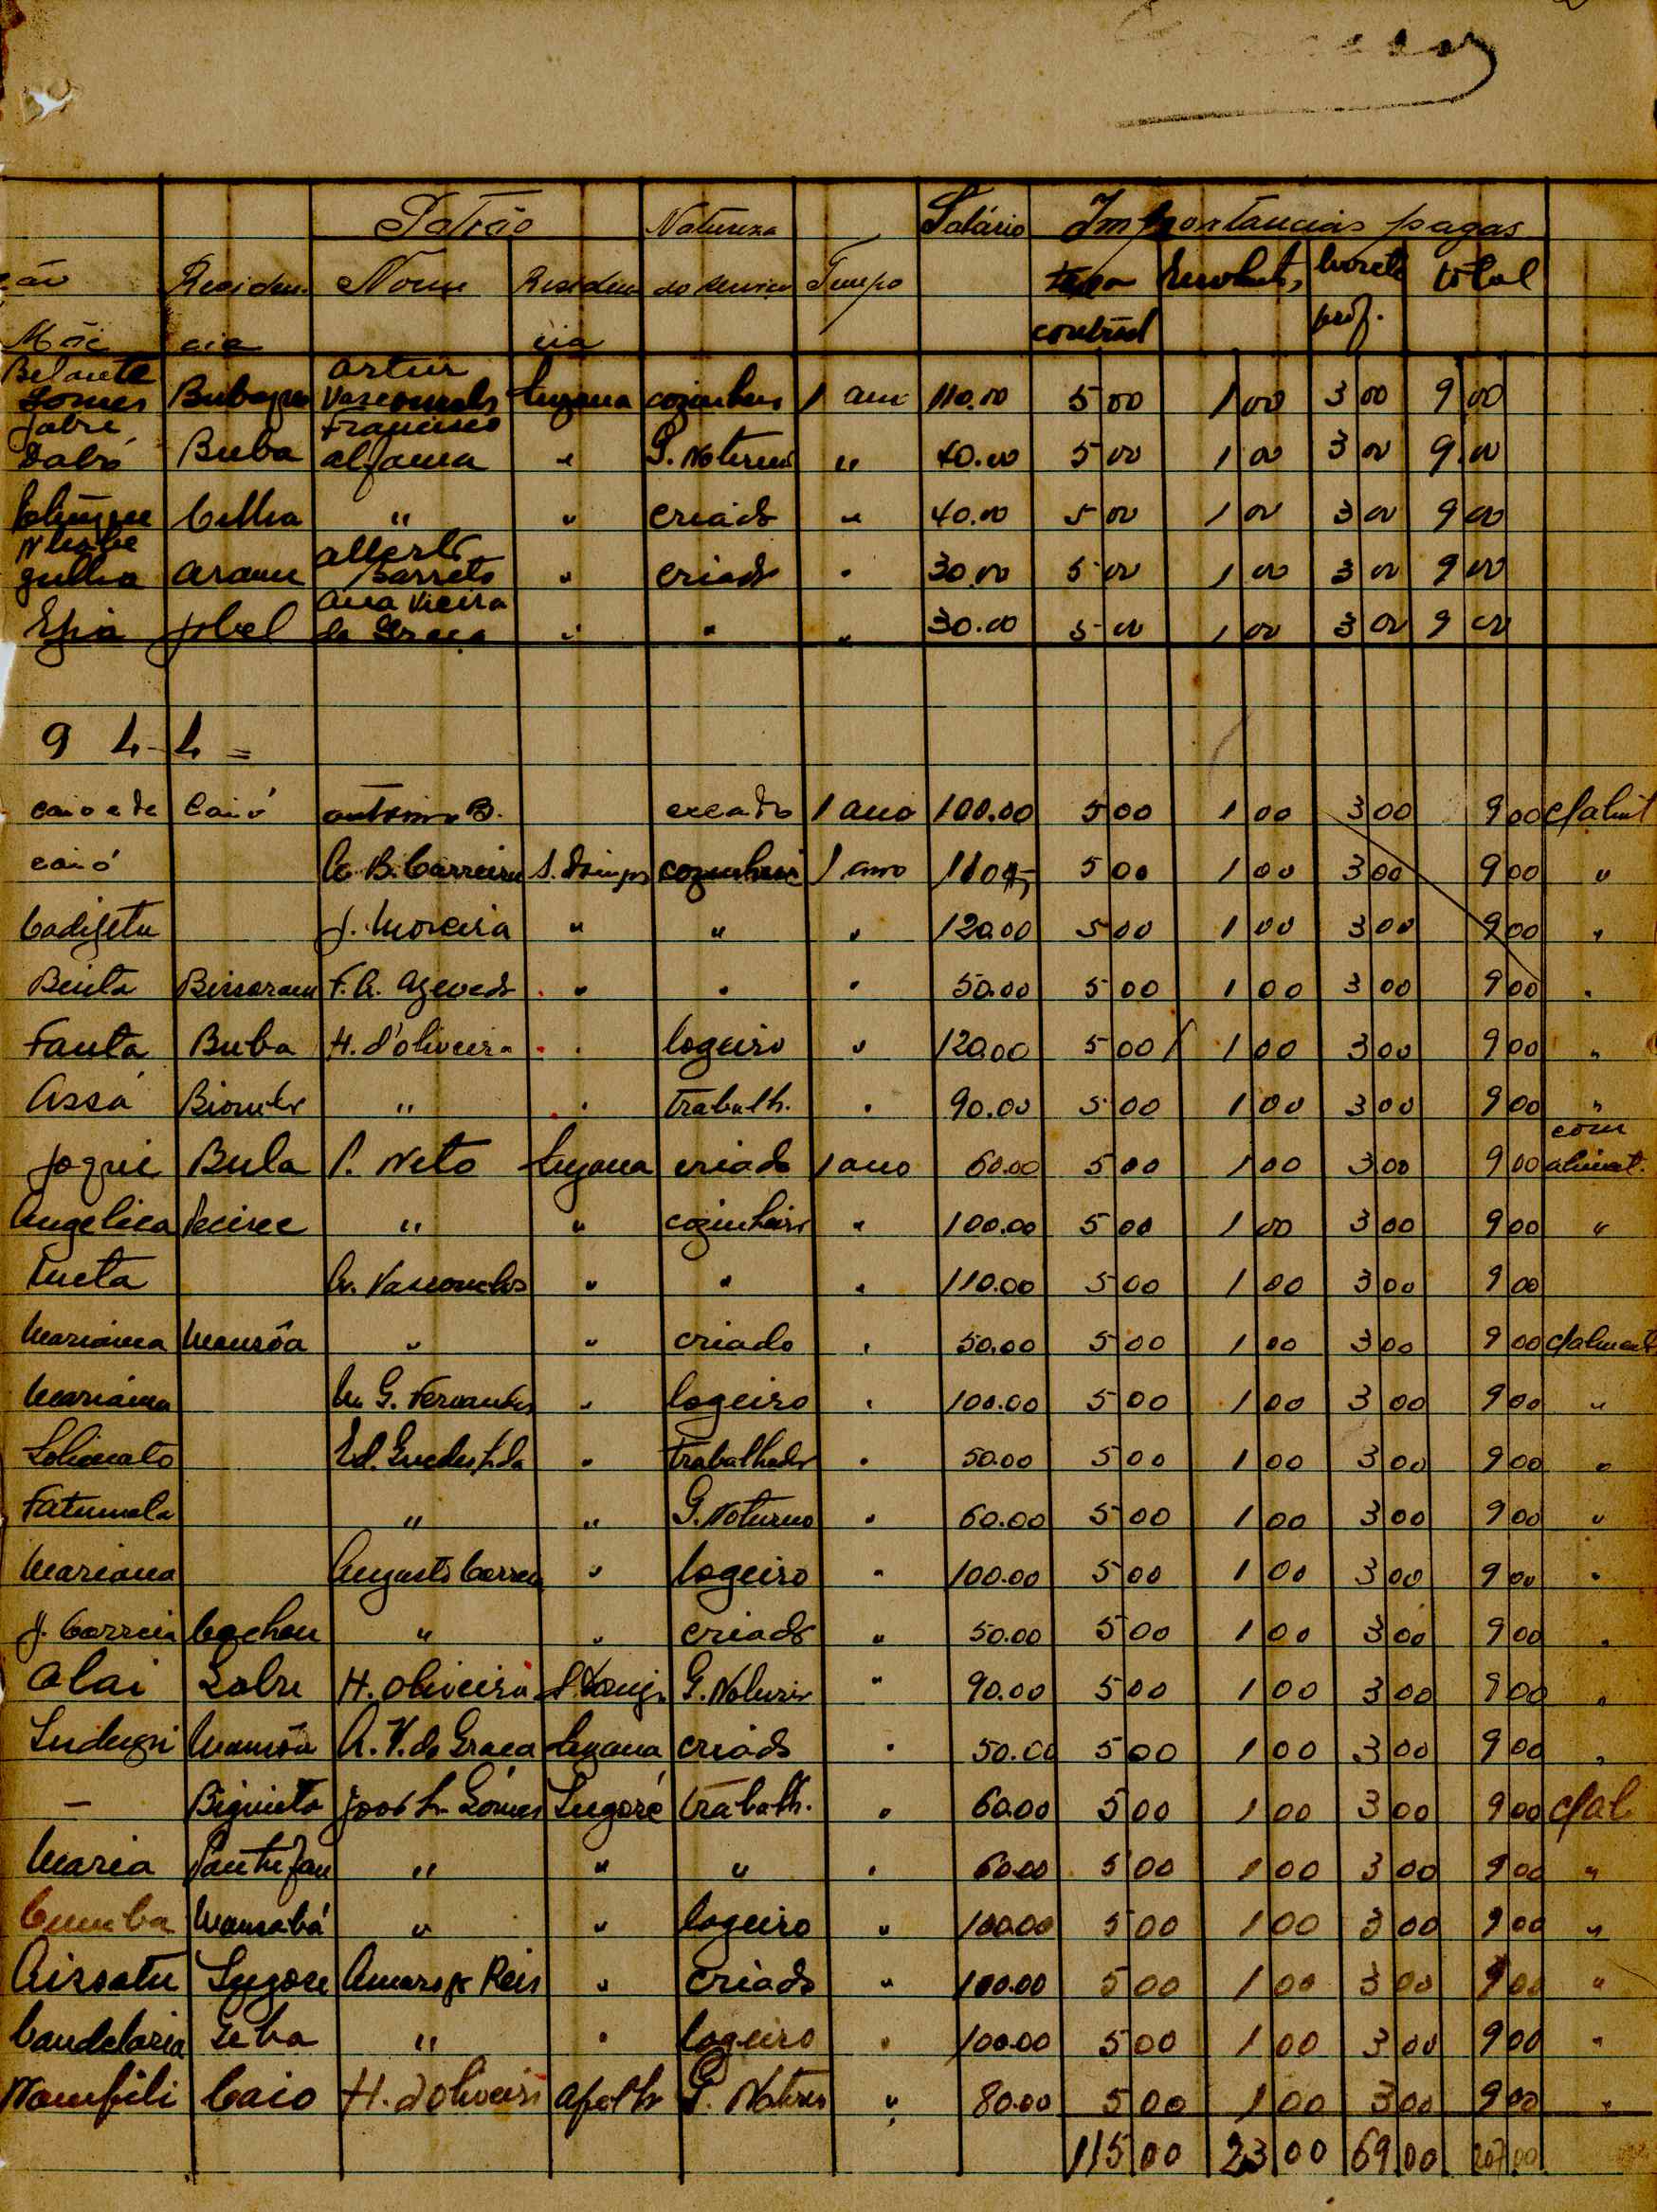 Patrão Natureza Salário Importancias pagas
ão Residen- Nome Residen do serviço Tempo taxa Emolut, livrete total
Mãe cia cia contrat prof.
Belante Artur
Gomes Bubaque Vasconcelos cozinheiro 1 ano 110.00 5 00 1 00 3 00 9 00
Francisco
Dabó Buba Aljama " G. Noturno " 40.00 5 00 1 00 3 00 9 00
" " criado " 40.00 5 00 1 00 3 00 9 00
Alberto
Barreto " criado " 30.00 5 00 1 00 3 00 9 00
Ana Vieira
da Graça " " " 30.00 5 00 1 00 3 00 9 00
9 4 - 4 =
Caió Antonio B. creado 1 ano 100.00 5 00 1 00 3 00 9 00 c/alimt
caió B. Carreira S. Doingos cozinheiro 1 ano 5 00 1 00 3 00 9 00 "
J. Moreira " " " 120.00 5 00 1 00 3 00 9 00 "
Binta Bissoram F. A. Azevedo " " " 50.00 5 00 1 00 3 00 9 00 "
Fanta Buba H. d'oliveira " logeiro " 120.00 5 00 1 00 3 00 9 00 "
Assá Biombo " " trabalh. " 90.00 5 00 1 00 3 00 9 00 "
com
Joqui Bula P. Neto criado 1 ano 60.00 5 00 1 00 3 00 9 00 aliment.
Angelica " " cozinheiro " 100.00 5 00 1 00 3 00 9 00 "
A. Vasconcelos " " " 110.00 5 00 1 00 3 00 9 00
Mariáma Mansôa " " criado " 50.00 5 00 1 00 3 00 9 00 c/aliment
Mariáma M. G. Fernandes " logeiro " 100.00 5 00 1 00 3 00 9 00 "
Ed. Guedes Lda " trabalhador " 50.00 5 00 1 00 3 00 9 00 "
Fatumata " " G. Noturno " 60.00 5 00 1 00 3 00 9 00 "
Mariama Augusto Correia " logeiro " 100.00 5 00 1 00 3 00 9 00 "
J. Correia Cacheu " " criado " 50.00 5 00 1 00 3 00 9 00 "
Alai H. Oliveira S. Doingo G. Noturno " 90.00 5 00 1 00 3 00 9 00 "
Mansôa A. V. da Graça criado " 50.00 5 00 1 00 3 00 9 00 "
— Biginita José L. Gómes Sugoré trabalh. " 60.00 5 00 1 00 3 00 9 00 c/al
Maria " " " " 60.00 5 00 1 00 3 00 9 00 "
Cumba Mansabá " " logeiro " 100.00 5 00 1 00 3 00 9 00 "
Aissatu Amaro Reis " criado " 100.00 5 00 1 00 3 00 9 00 "
Candelaria Geba " " logeiro " 100.00 5 00 1 00 3 00 9 00 "
Caio H. d'oliveira G. Noturno " 80.00 5 00 1 00 3 00 9 00 "
115 00 23 00 69 00 207 00